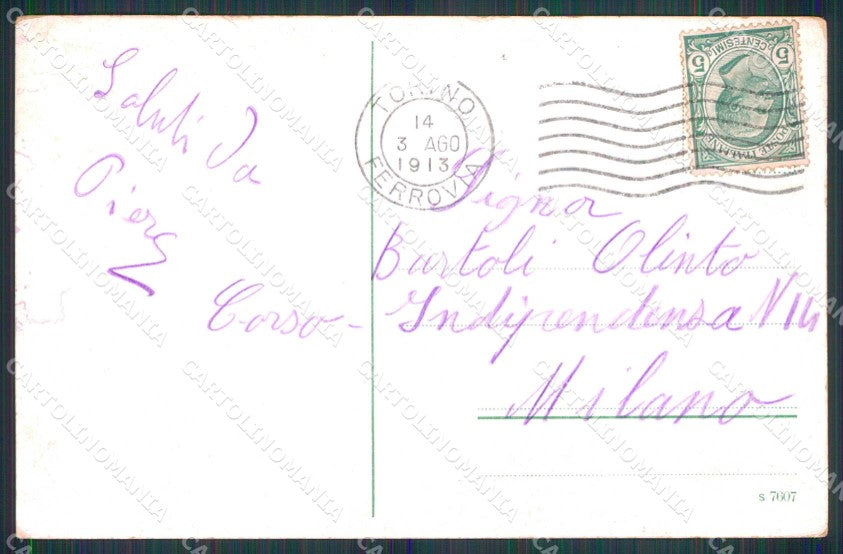 Saluti da
Piera
TORINO
14
3 AGO
1913
FERROVIA
CENTESIMI
5 5
Signor
Bartoli Olinto
Corso - Indipendensa N 14
Milano
s. 7607
CARTOLINOMANIA